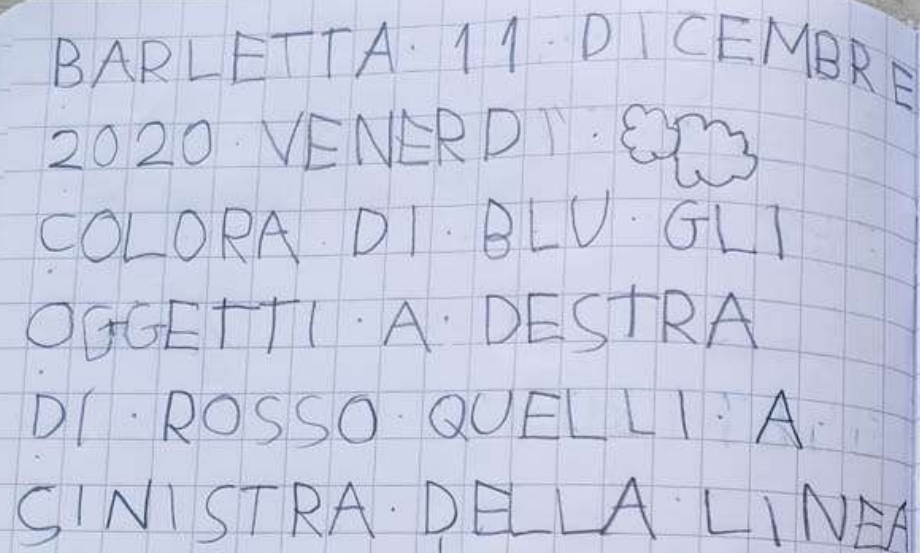 BARLETTA · 11 · DICEMBRE
2020 · VENERDÌ ·
COLORA · DI · BLU · GLI
OGGETTI · A · DESTRA
DI · ROSSO · QUELLI · A
SINISTRA · DELLA · LINEA